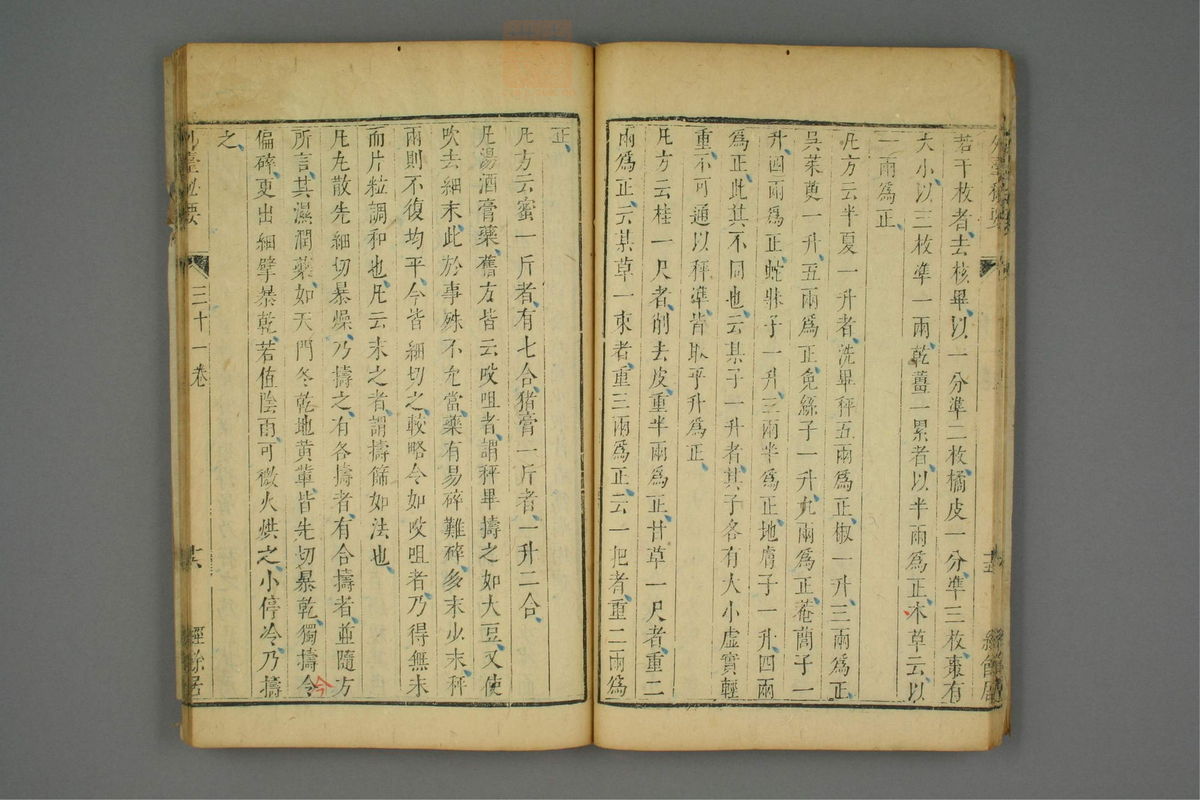 外臺秘要
十五
經餘居
若干枚者去核畢以一分準二枚橘皮一分準三枚棗有
大小以三枚準一兩乾薑一累者以半兩爲正本草云以
一兩爲正
凡方云半夏一升者洗畢秤五兩爲正椒一升三兩爲正
吳茱萸一升五兩爲正兔絲子一升九兩爲正菴䕡子一
升四兩爲正蛇牀子一升三兩半爲正地膚子一升四兩
爲正此其不同也云某子一升者其子各有大小虛實輕
重不可通以秤準皆取平升爲正
凡方云桂一尺者削去皮重半兩爲正甘草一尺者重二
兩爲正云某草一束者重三兩爲正云一把者重二兩爲
正
凡方云蜜一斤者有七合猪膏一斤者一升二合
凡湯酒膏藥舊方皆云㕮咀者謂秤畢擣之如大豆又使
吹去細末此於事殊不允當藥有易碎難碎多末少末秤
兩則不復均平今皆細切之較略令如㕮咀者乃得無末
而片粒調和也凡云末之者謂擣篩如法也
凡丸散先細切暴燥乃擣之有各擣者有合擣者並隨方
所言其濕潤藥如天門冬乾地黃軰皆先切暴乾獨擣令
今
偏碎更出細擘暴乾若值陰雨可微火烘之小停冷乃擣
之
外臺秘要
三十一卷
十六
經餘居